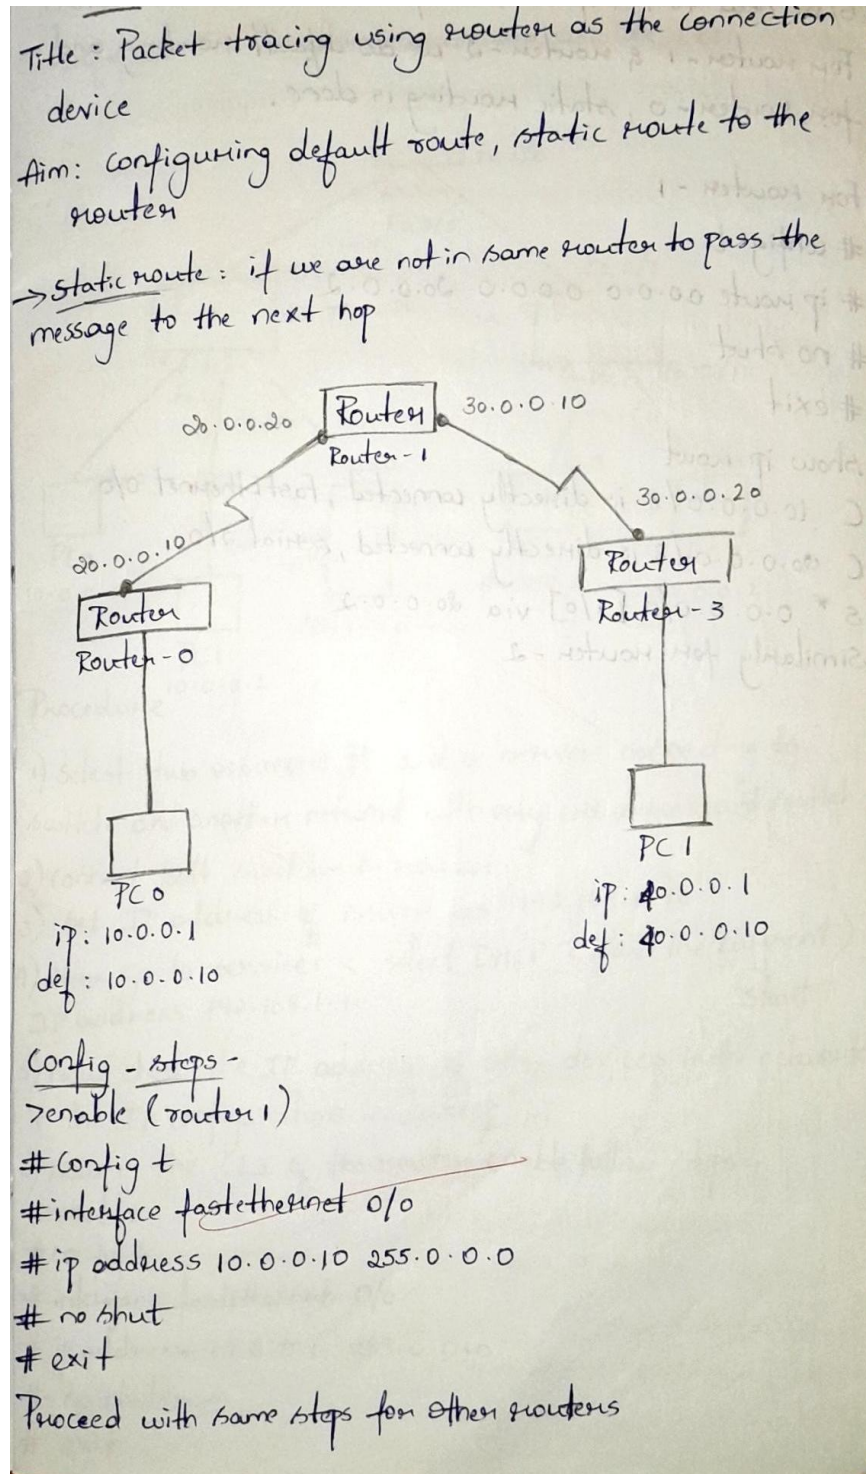 Title : Packet tracing using router as the connection
device
Aim: configuring default route, static route to the
router
→ static route : if we are not in same router to pass the
message to the next hop
20.0.0.20 Router 30.0.0.10
Router-1
30.0.0.20
20.0.0.10
Router
Router
Router-3
Router-0
PC 1
PC0
ip: 40.0.0.1
ip: 10.0.0.1
def: 40.0.0.10
def: 10.0.0.10
Config - steps -
>enable (router1)
#config t
#interface fastethernet 0/0
#ip address 10.0.0.10 255.0.0.0
# no shut
# exit
Proceed with same steps for other routers